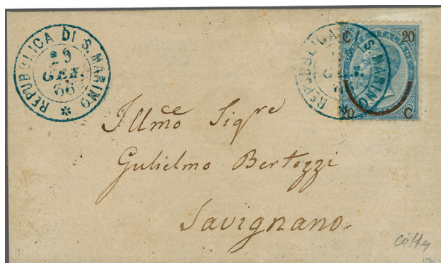 REPUBBLICA DI S. MARINO
29
GEN.
66
*
REPUBBLICA DI S. MARINO
GEN.
66
*
C 20
20 C
Illmo Sigre
Gulielmo Bertozzi
Savignano.